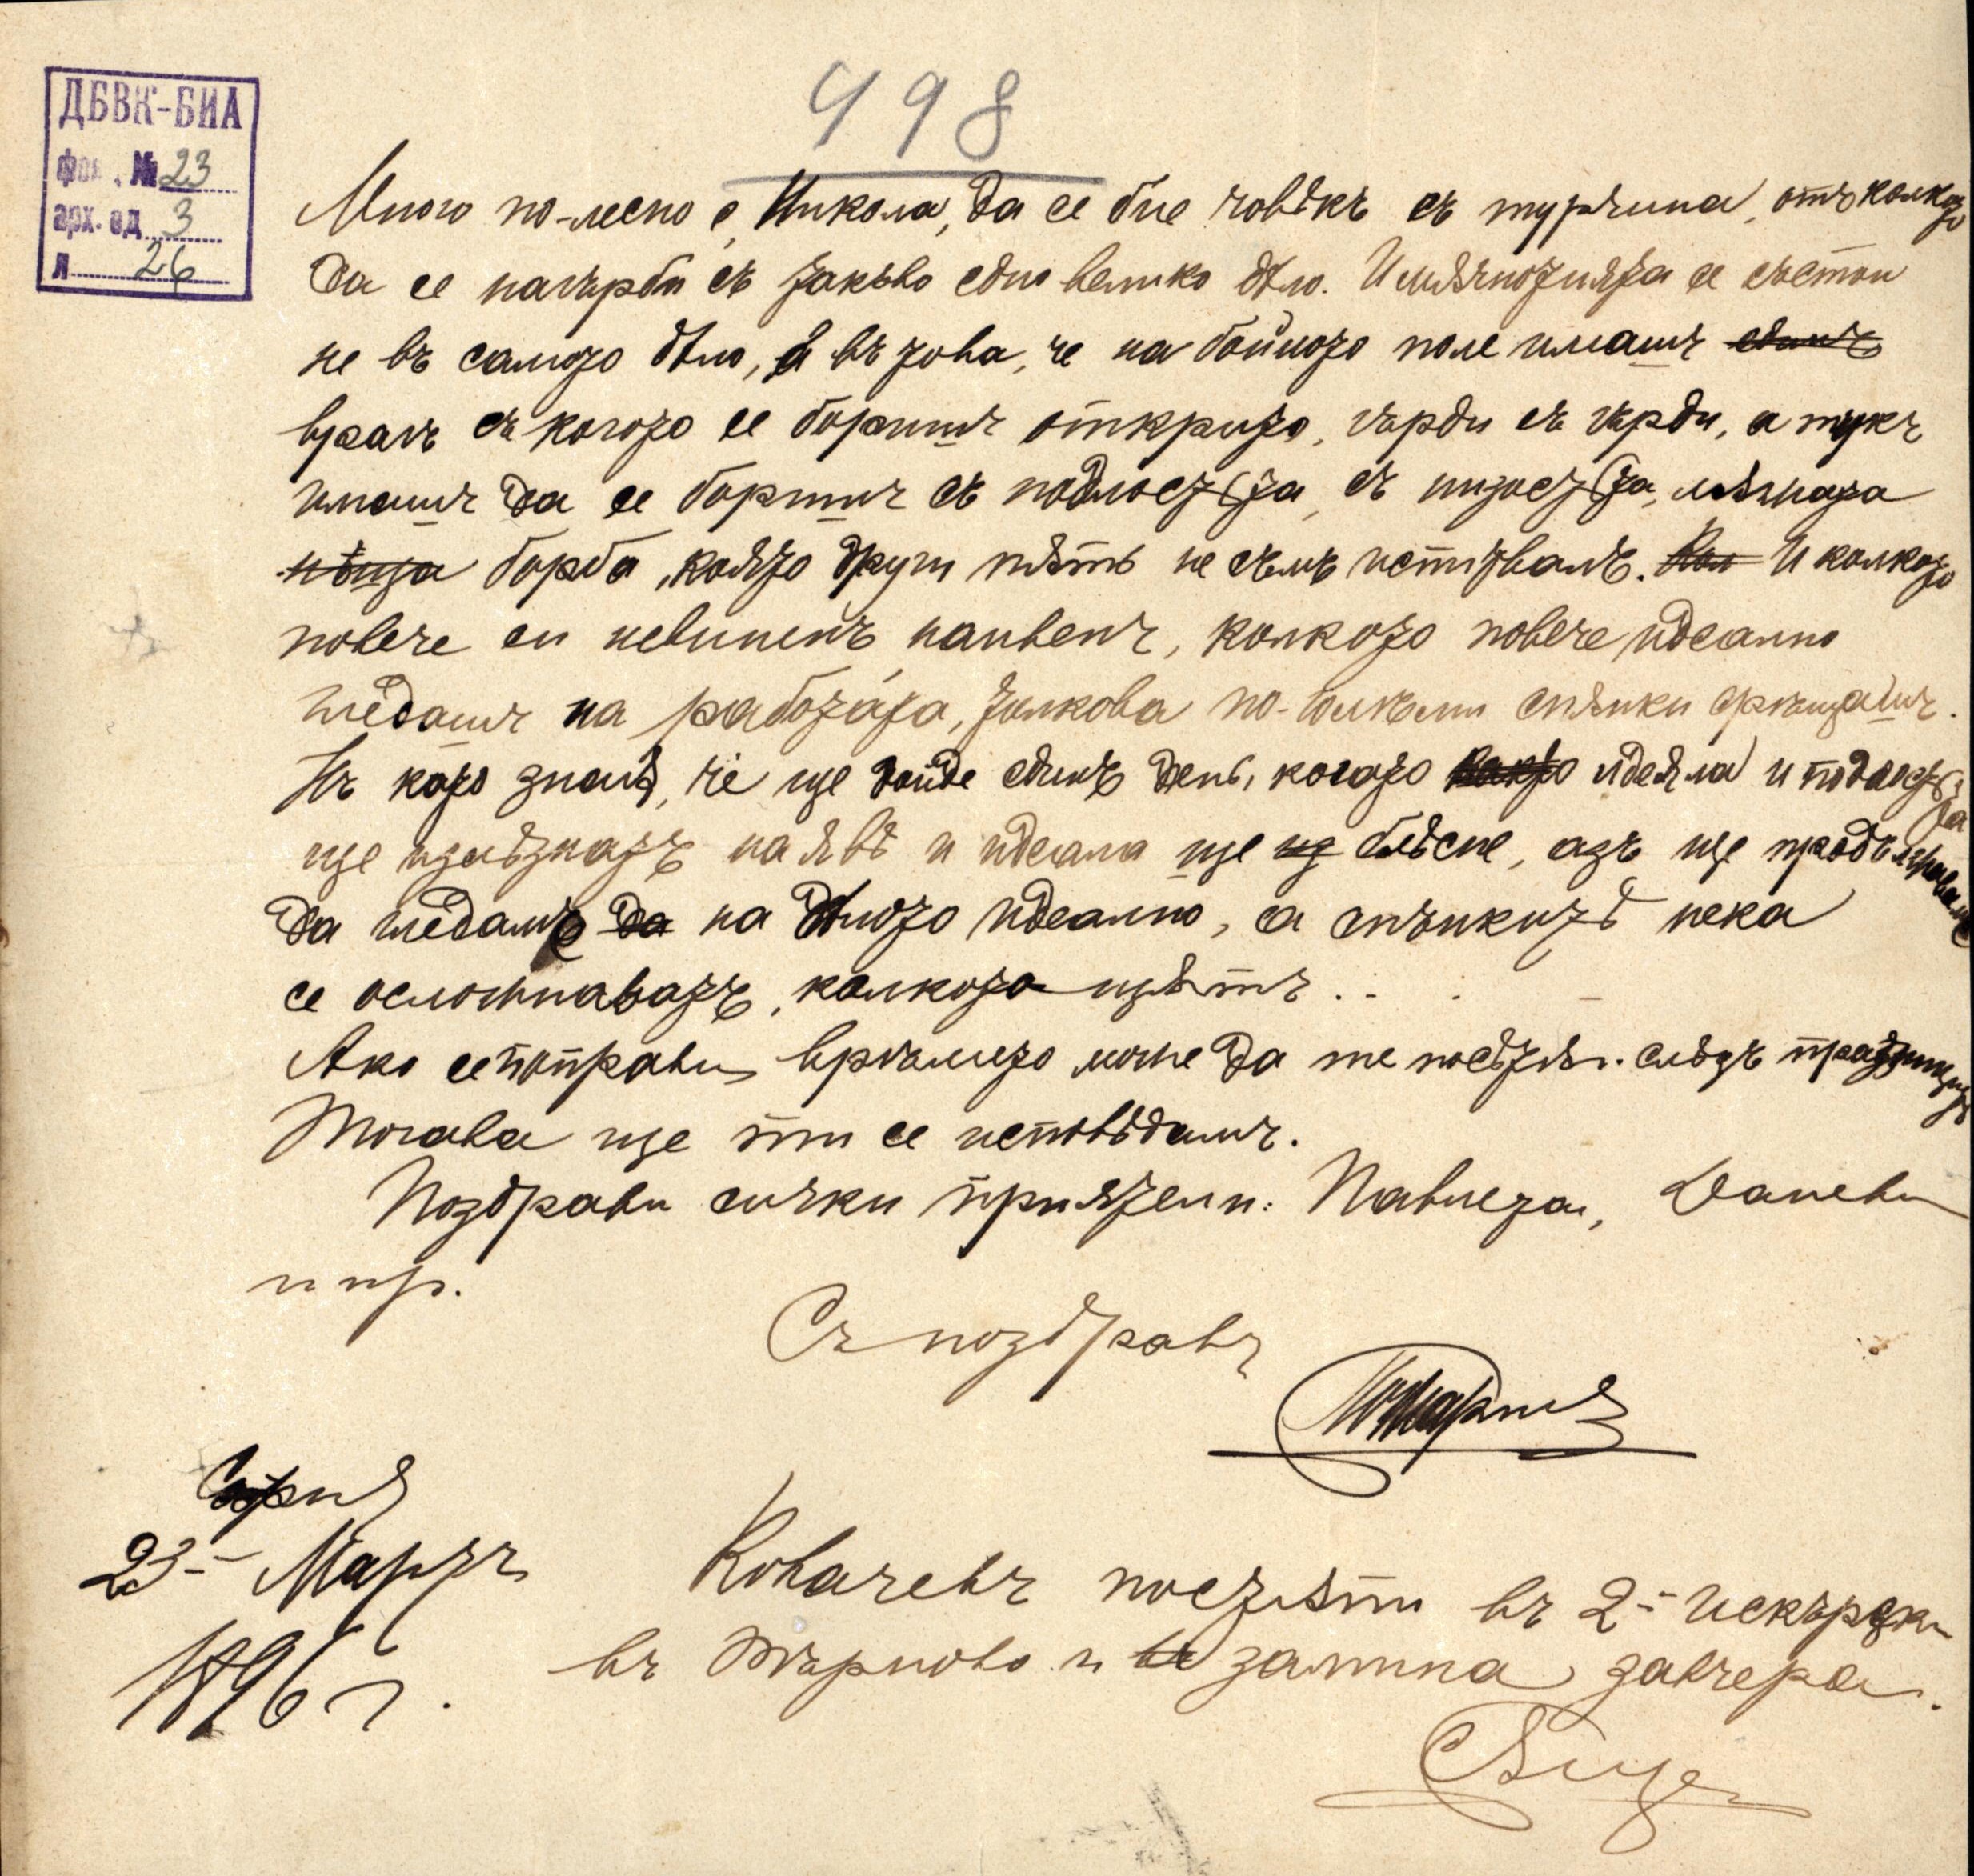 498
ДБВК-БИА
фон. № 23
арх. ед 3
л 26
Много по-лесно е, Никола, да се бие човѣкъ съ турчина, отъ колкото
да се нагърби съ такъво едно велико дѣло. И мѫчнотията се състои
не въ самото дѣло, а въ това, че на бойното поле имашъ единъ
врагъ съ когото се боришъ открито, гърди съ гърди, а тукъ
имашъ да се боришъ съ подлостьта, съ низостьта, мѫчната
нѣща борба, която други пѫть не съмъ испитвалъ. Кол И колкото
повече си невиненъ наивенъ, колкото повече идеално
гледашъ на работата, толкова по-големи спънки срѣщашъ.
Нъ като зная, че ще дойде единъ день, когато като идеяла и подлостьта
ще излѣзнатъ на явѣ и идеала ще из блѣсне, азъ ще продължавамъ
да гледамъ да на дѣлото идеално, а спънкитѣ нека
се осложнаватъ, колкото щѫтъ . . . –
Ако се поправи врѣмето може да те посѣтѭ. слѣдъ празницитѣ
Тогава ще ти се исповѣдамъ.
Поздрави сички приятели: Павлета, Даневи
и пр.
Съ поздравъ
София
23 – Мартъ
1896 г.
Ковачевъ постѫпи въ 2-й Искърски
въ Търново и въ замина завчера.
Сѫщи